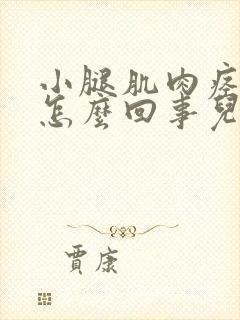 小腿肌肉疼
怎麼回事兒
賈康